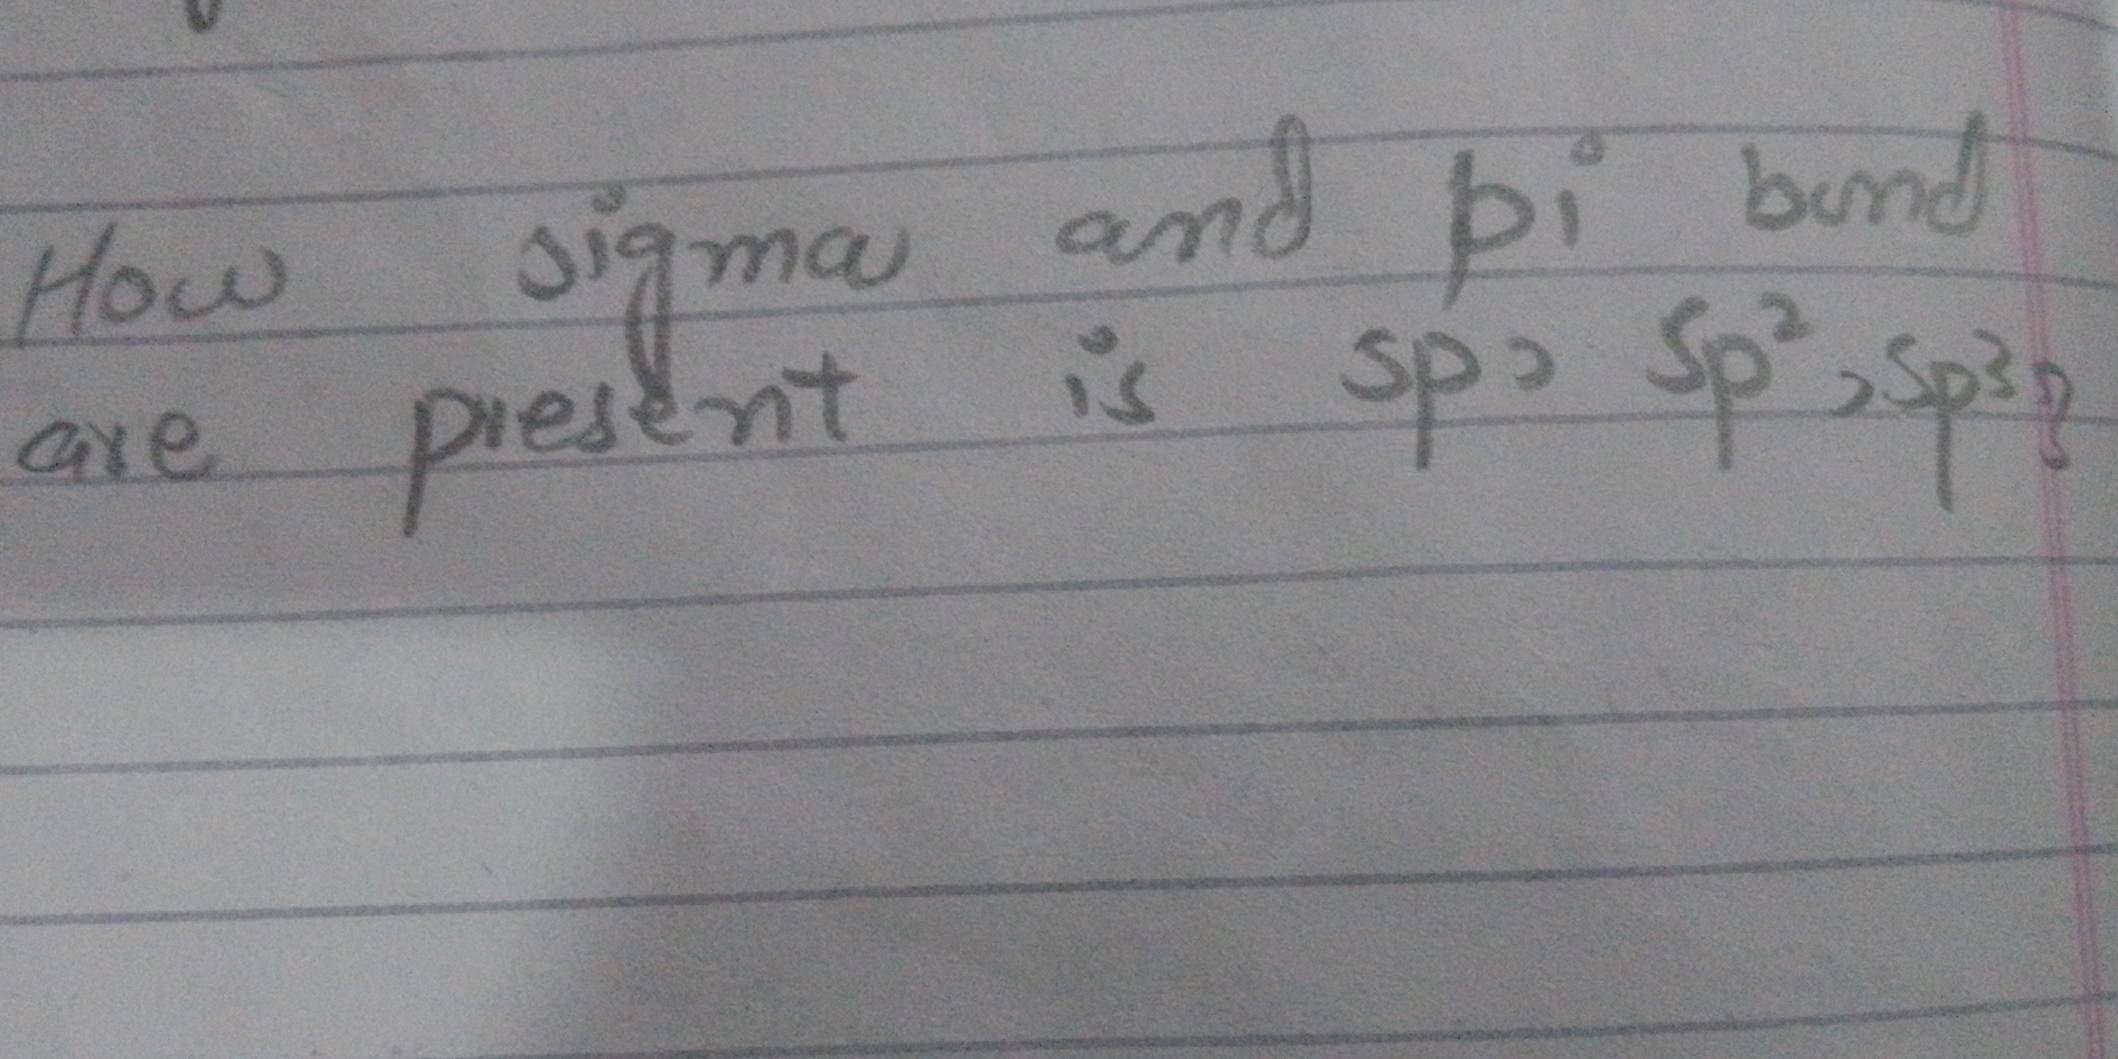 How sigma and pi bond
are present is sp, sp², sp³?